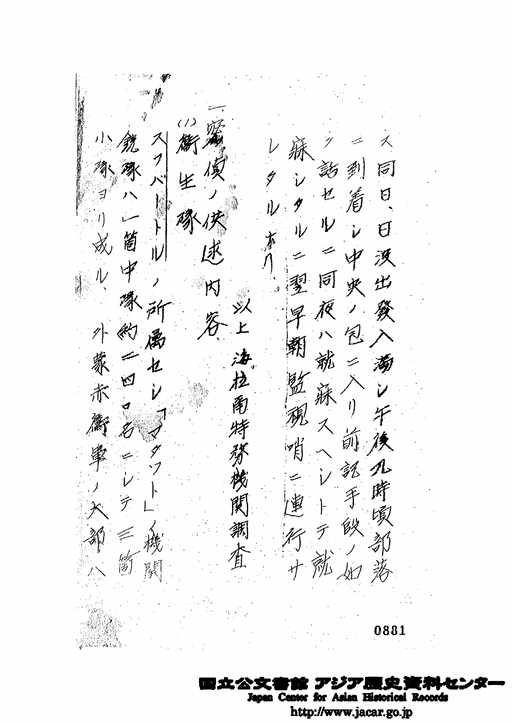 ス同日、日没出發入満シ午後九時頃部落
ニ到着シ中央ノ包ニ入リ前記手段ノ如
ク話セルニ同夜ハ就寐スヘシトテ就
寐シタルニ翌早朝監視哨ニ連行サ
レタルナリ、
以上 海拉爾特務機関調査
一、密偵ノ供述内容
(ハ)衛生隊
スフバートルノ所属セシ「マタソト」ノ機関
銃隊ハ一箇中隊約二四〇名ニシテ三箇
小隊ヨリ成ル 外蒙赤衛軍ノ大部ハ
0881
国立公文書館 アジア歴史資料センター
Japan Center for Asian Historical Records
http://www.jacar.go.jp